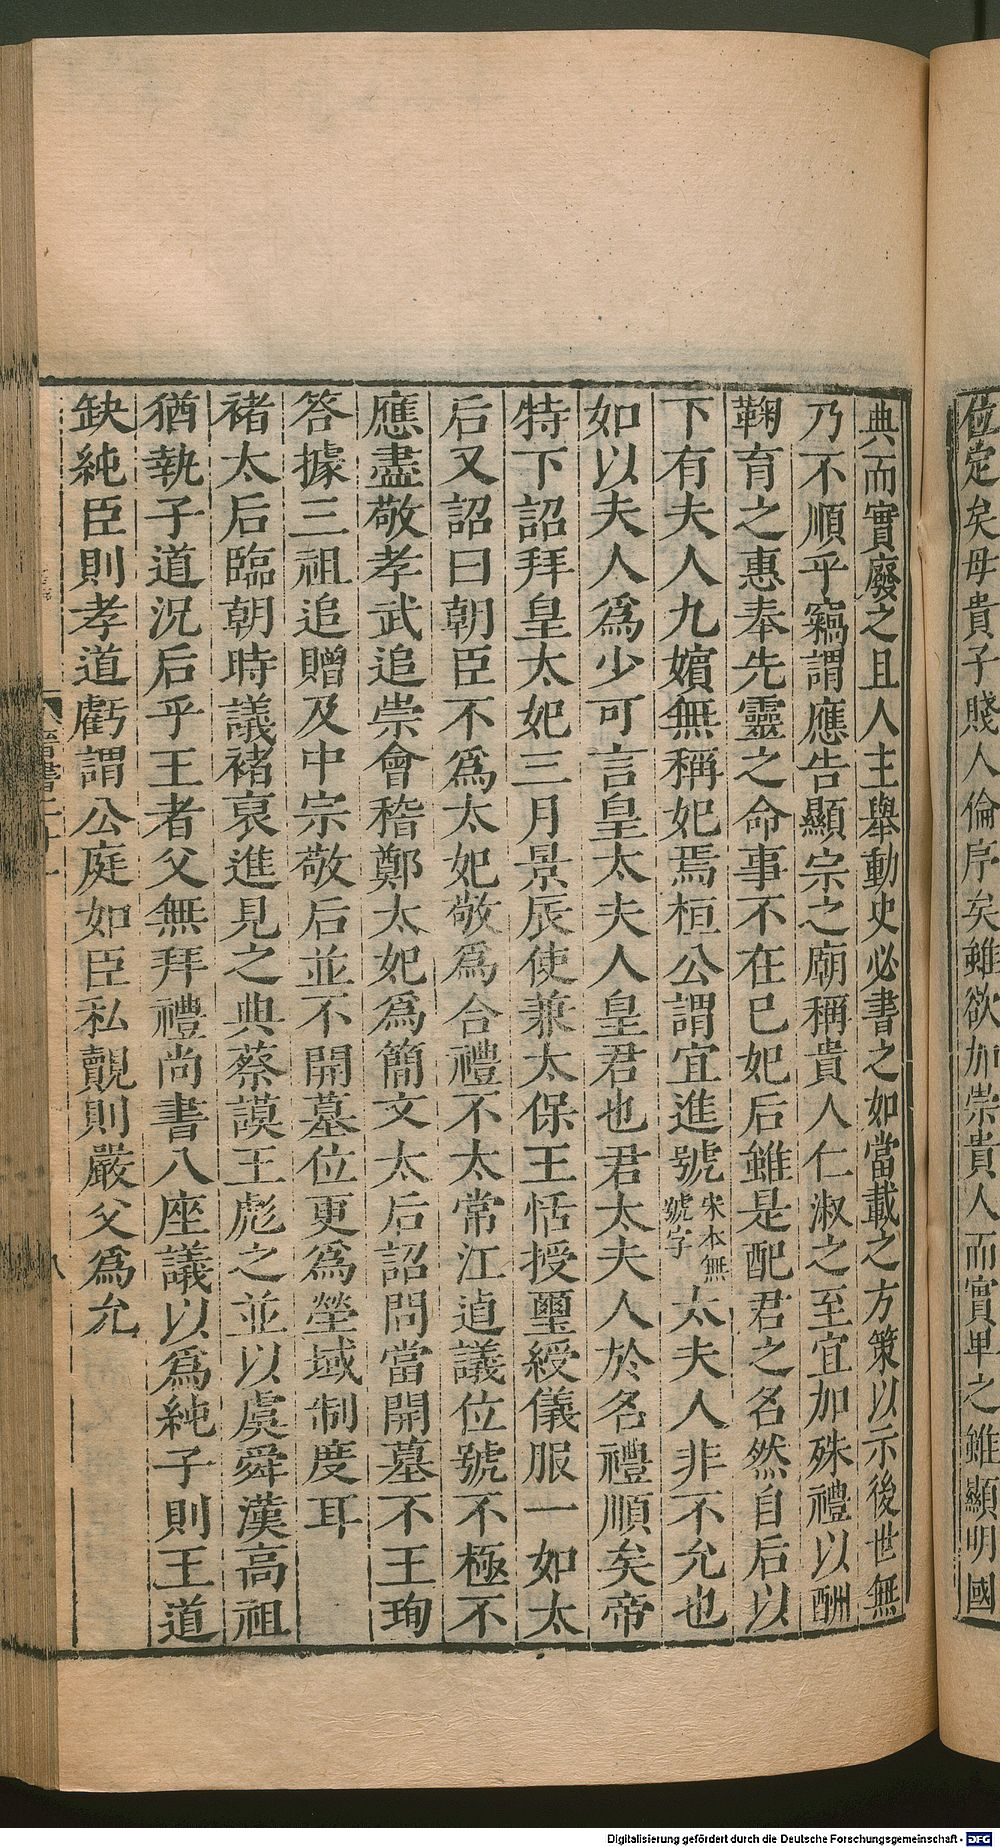 位定矣母貴子賤人倫序矣雖欲加崇貴人而實卑之雖顯明國
典而實廢之且人主舉動史必書之如當載之方策以示後世無
乃不順乎竊謂應告顯宗之廟稱貴人仁淑之至宜加殊禮以酬
鞠育之惠奉先靈之命事不在已妃后雖是配君之名然自后以
下有夫人九嬪無稱妃焉桓公謂宜進號宋本無號字太夫人非不允也
如以夫人爲少可言皇太夫人皇君也君太夫人於名禮順矣帝
特下詔拜皇太妃三月景辰使兼太保王恬授璽綬儀服一如太
后又詔曰朝臣不爲太妃敬爲合禮不太常江逌議位號不極不
應盡敬孝武追崇會稽鄭太妃爲簡文太后詔問當開墓不王珣
答據三祖追贈及中宗敬后並不開墓位更爲塋域制度耳
褚太后臨朝時議褚裒進見之典蔡謨王彪之並以虞舜漢高祖
猶執子道況后乎王者父無拜禮尚書八座議以爲純子則王道
缺純臣則孝道虧謂公庭如臣私覿則嚴父爲允
八
Digitalisierung gefördert durch die Deutsche Forschungsgemeinschaft - DFG